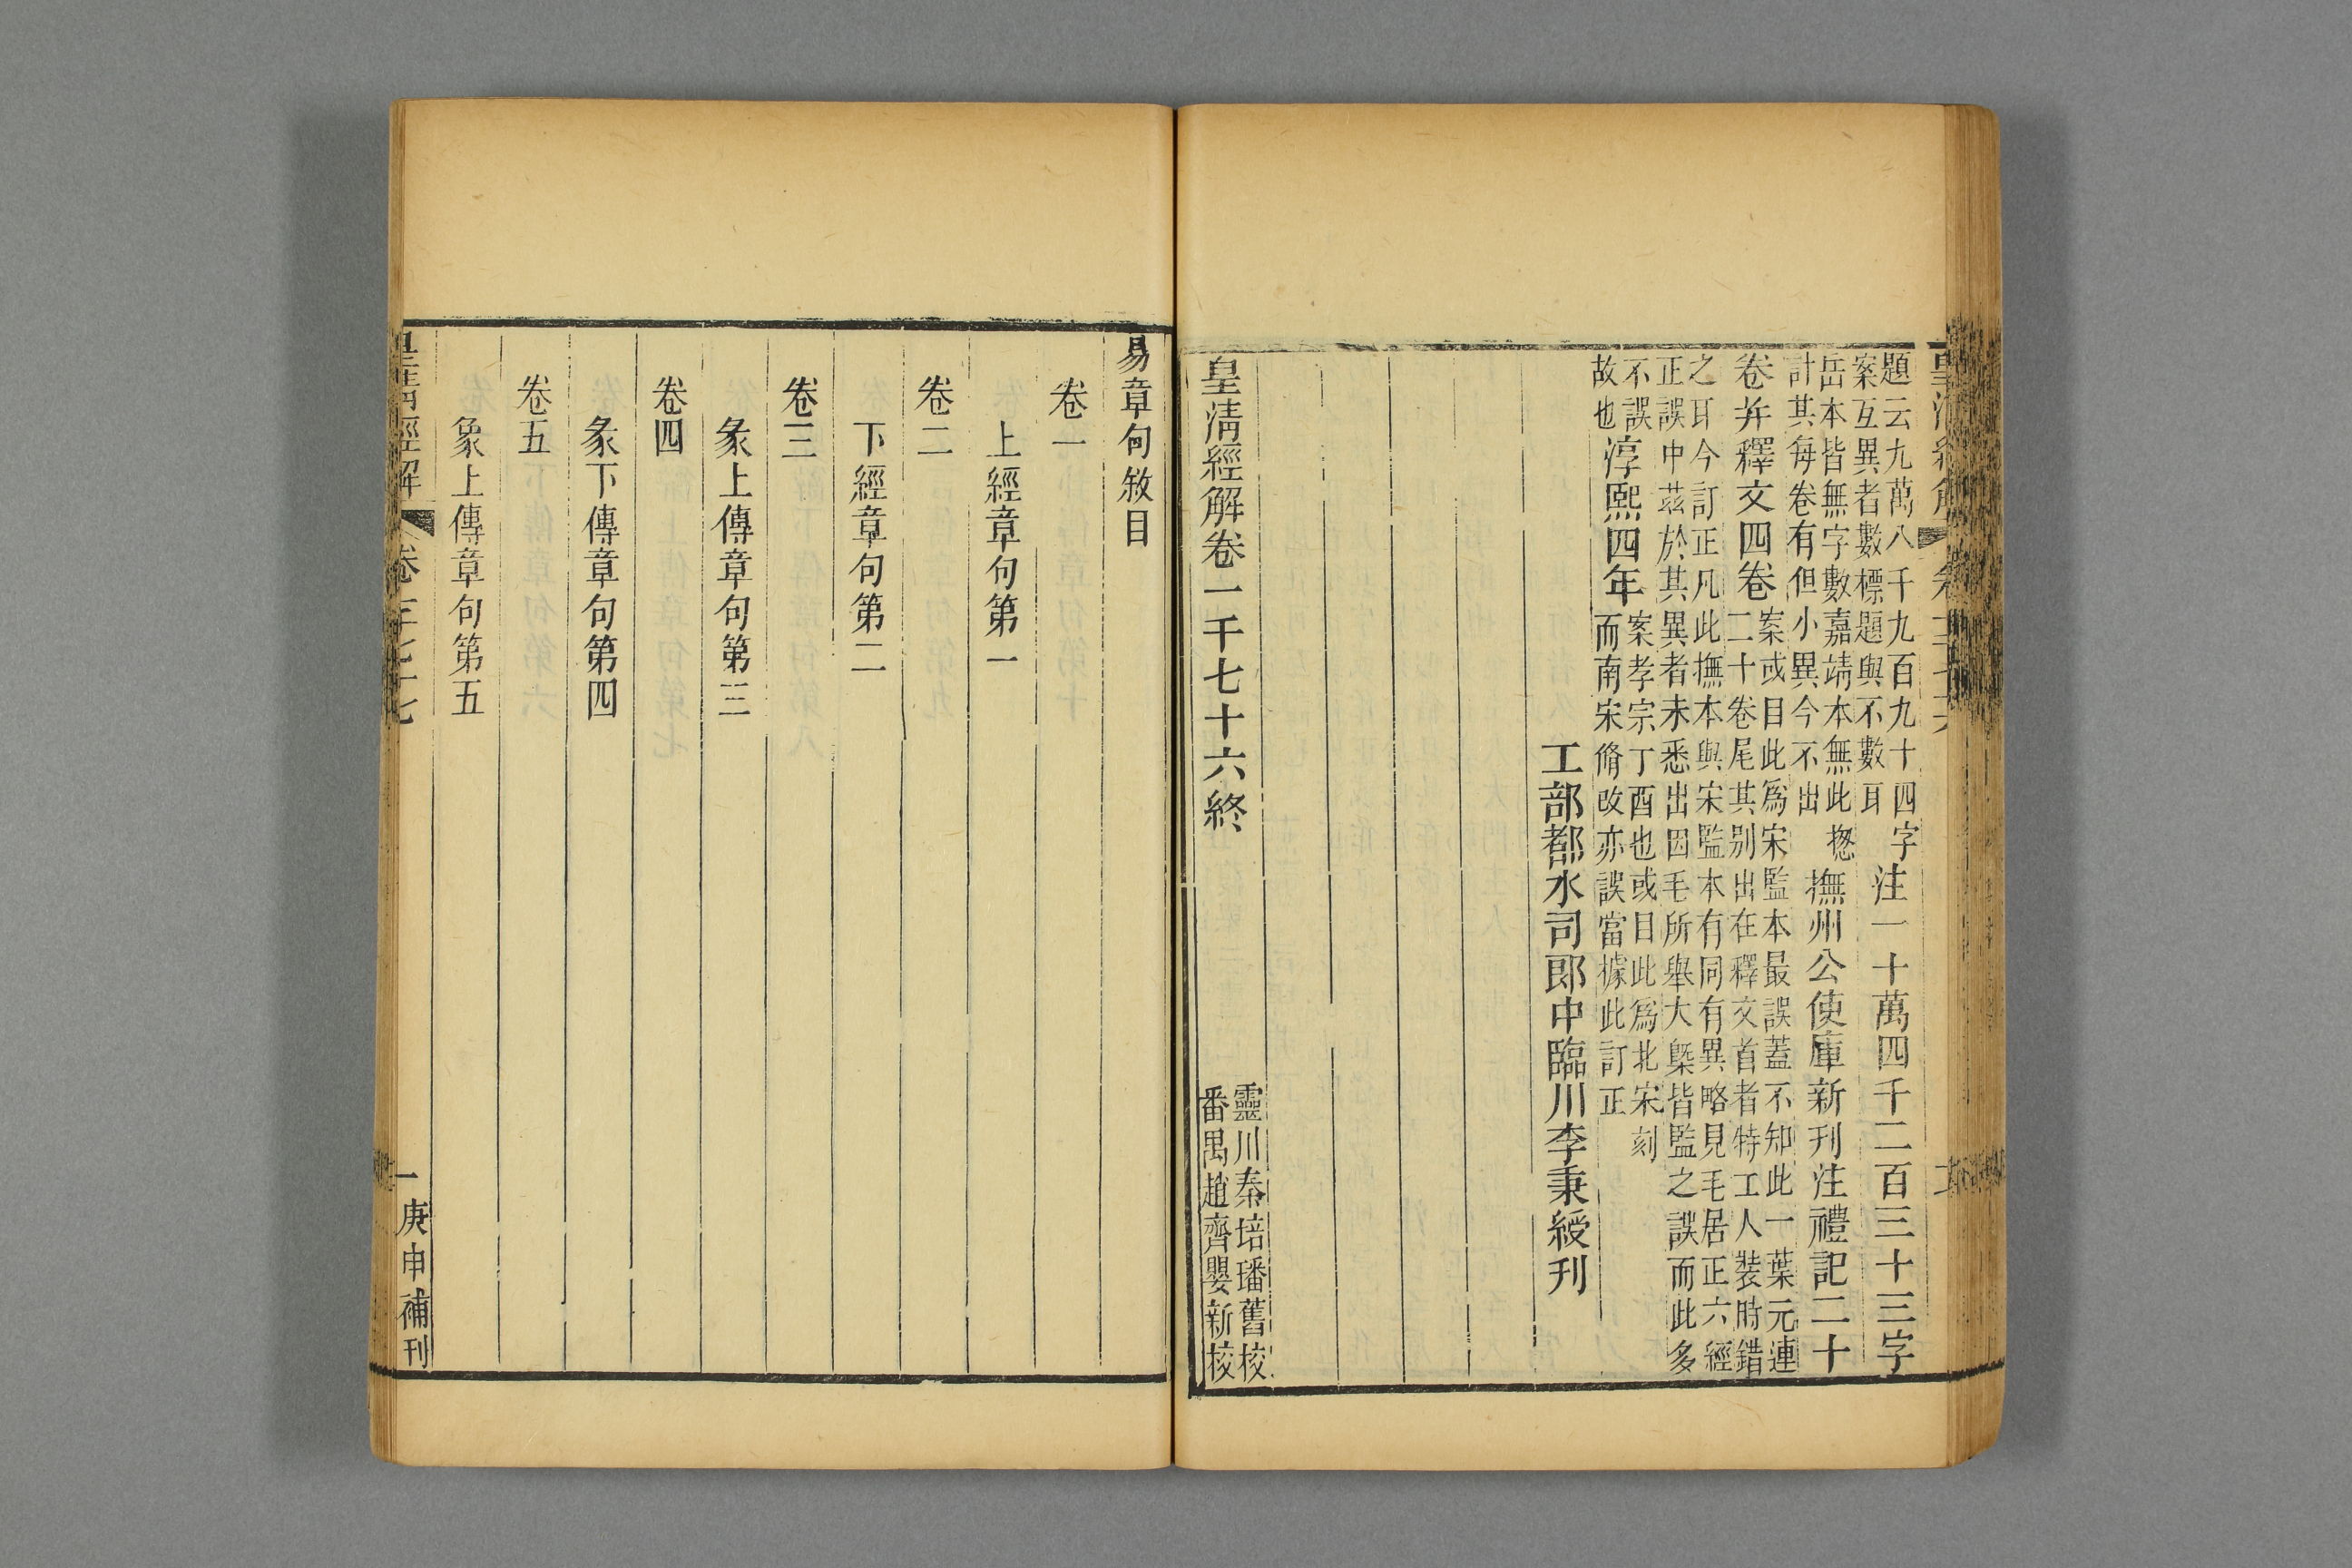 皇清經解
題云九萬八千九百九十四字
案互異者數標題與不數耳
注一十萬四千二百三十三字
岳本皆無字數嘉靖本無此揔
計其每卷有但小異今不出
撫州公使庫新刊注禮記二十
卷并釋文四卷
案或目此爲宋監本最誤蓋不知此一葉元連
二十卷尾其别出在釋文首者特工人裝時錯
之耳今訂正凡此撫本與宋監本有同有異略見毛居正六經
正誤中茲於其異者未悉出因毛所舉大槩皆監之誤而此多
不誤
故也
淳熙四年
案孝宗丁酉也或目此爲北宋刻
而南宋脩改亦誤當據此訂正
工部都水司郎中臨川李秉綬刊
皇清經解卷一千七十六終
靈川秦培璠舊校
番禺趙齊嬰新校
易章句敘目
卷一
上經章句第一
卷二
下經章句第二
卷三
彖上傳章句第三
卷四
彖下傳章句第四
卷五
象上傳章句第五
皇清經解
一
庚申補刊